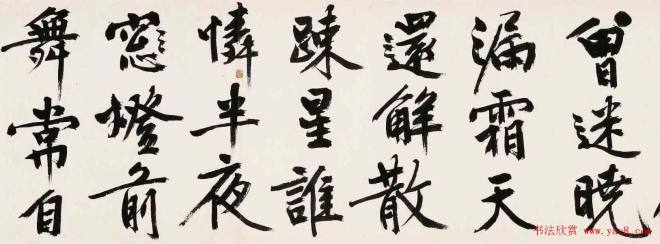 曾迷曉
漏霜天
還解散
踈星誰
憐半夜
窻燈前
舞常自
书法欣赏 www.yac8.com